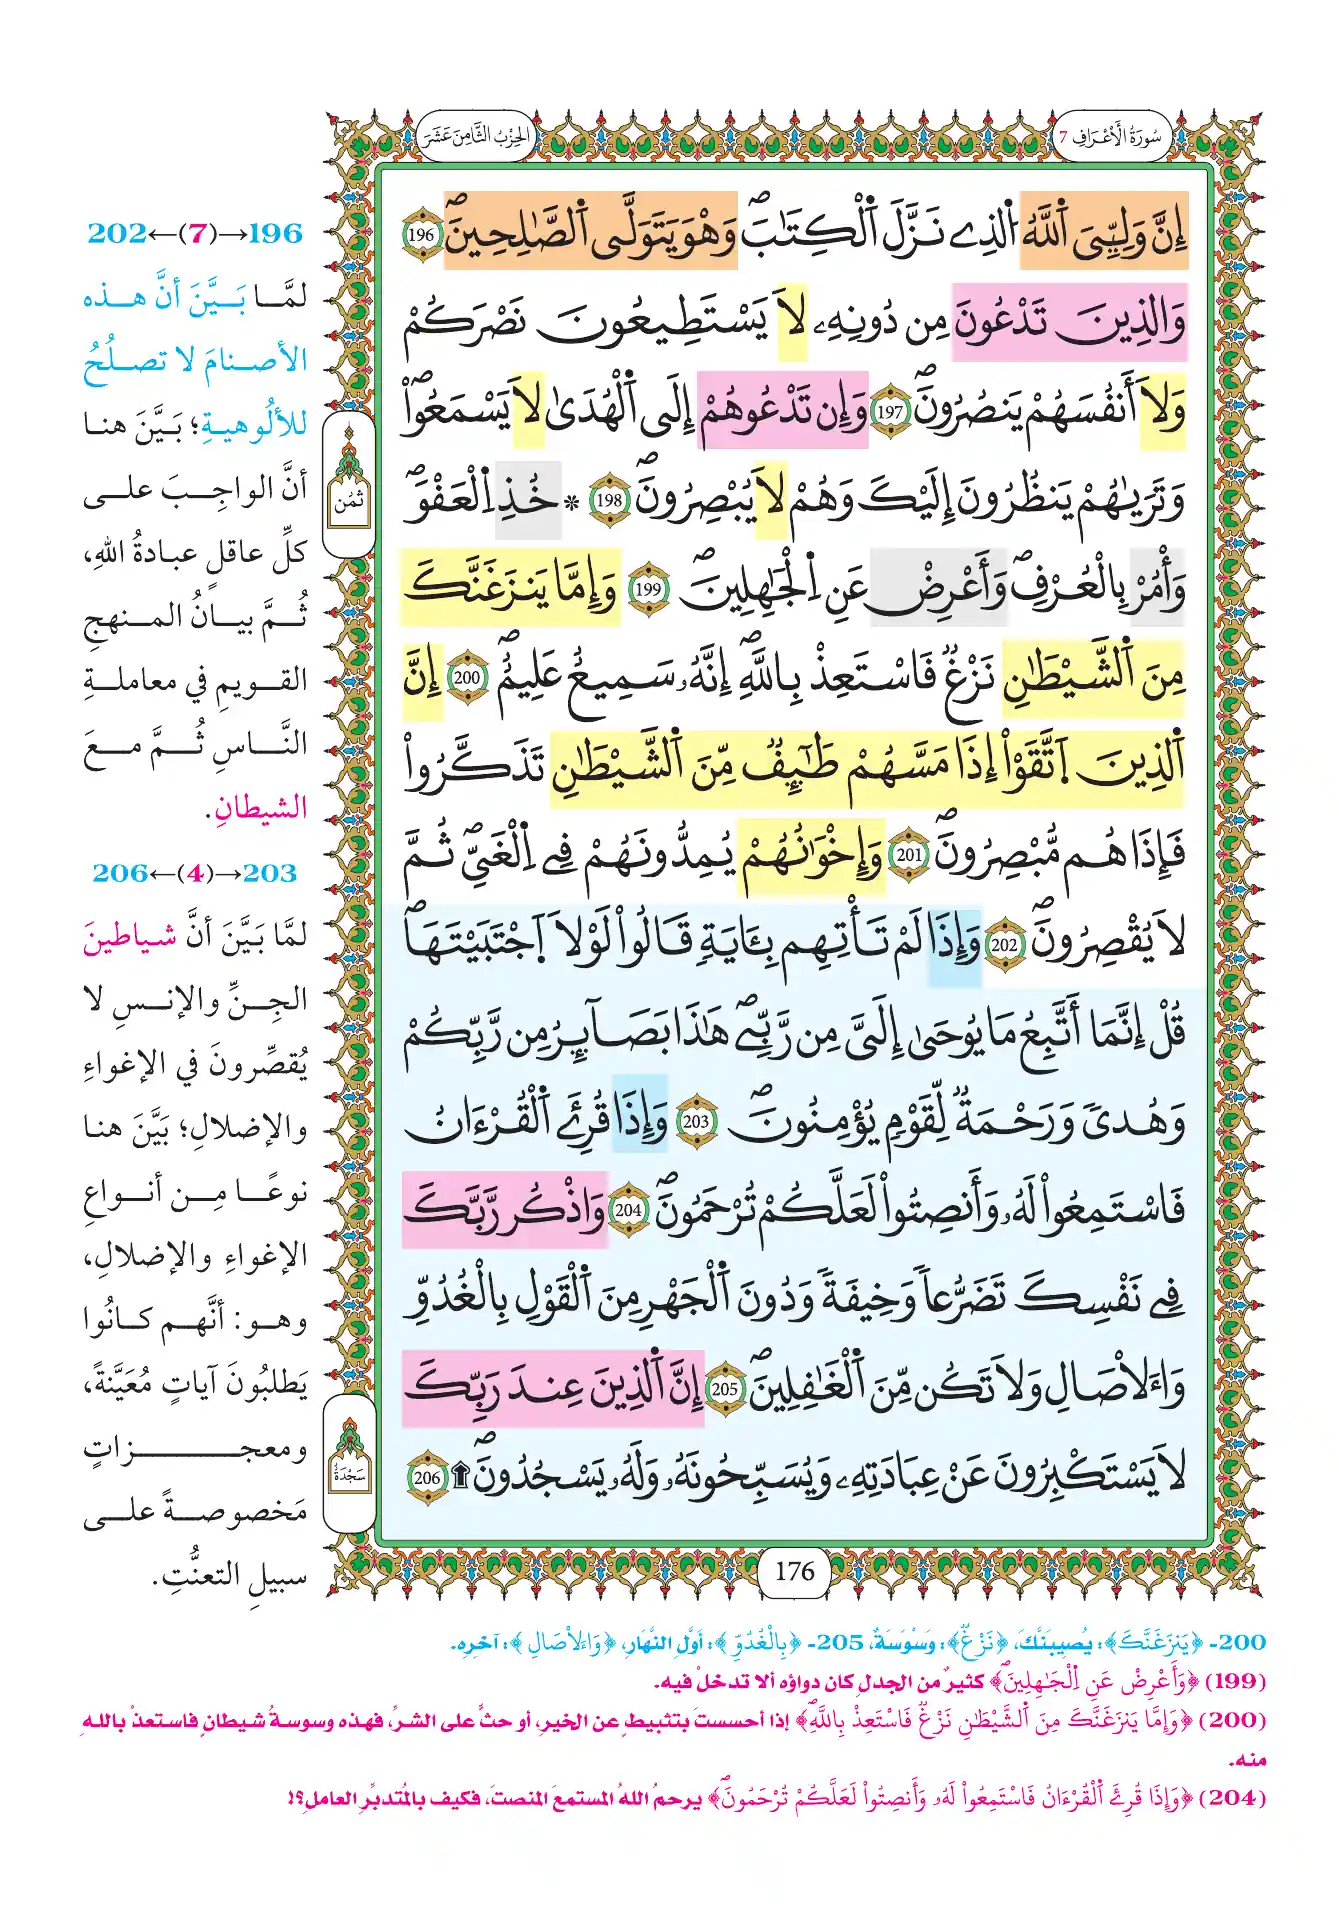 سُورَةُ الْأَعْرَافِ 7
الحِزْبُ الثَّامِنَ عَشَرَ
إِنَّ وَلِـِّۧيَ اَ۬للَّهُ اُ۬لذِے نَزَّلَ اَ۬لْكِتَٰبَۖ وَهْوَ يَتَوَلَّي اَ۬لصَّٰلِحِينَۖ 196
وَالذِينَ تَدْعُونَ مِن دُونِهِۦ لَا يَسْتَطِيعُونَ نَصْرَكُمْ
وَلَآ أَنفُسَهُمْ يَنصُرُونَۖ 197 وَإِن تَدْعُوهُمْ إِلَي اَ۬لْهُد۪ىٰ لَا يَسْمَعُواْۖ
وَتَر۪ىٰهُمْ يَنظُرُونَ إِلَيْكَ وَهُمْ لَا يُبْصِرُونَۖ 198 * خُذِ اِ۬لْعَفْوَۖ
وَامُرْ بِالْعُرْفِۖ وَأَعْرِضْ عَنِ اِ۬لْجَٰهِلِينَۖ 199 وَإِمَّا يَنزَغَنَّكَ
مِنَ اَ۬لشَّيْطَٰنِ نَزْغٞ فَاسْتَعِذْ بِاللَّهِۖ إِنَّهُۥ سَمِيعٌ عَلِيمٌۖ 200 إِنَّ
اَ۬لذِينَ اَ۪تَّقَوِاْ إِذَا مَسَّهُمْ طَٰٓئِفٞ مِّنَ اَ۬لشَّيْطَٰنِ تَذَكَّرُواْ
فَإِذَا هُم مُّبْصِرُونَۖ 201 وَإِخْوَٰنُهُمْ يُمِدُّونَهُمْ فِے اِ۬لْغَيِّۖ ثُمَّ
لَا يُقْصِرُونَۖ 202 وَإِذَا لَمْ تَأْتِهِم بِـَٔايَةٖ قَالُواْ لَوْلَا اَ۪جْتَبَيْتَهَاۖ
قُلْ إِنَّمَآ أَتَّبِعُ مَا يُوح۪ىٰٓ إِلَيَّ مِن رَّبِّےۖ هَٰذَا بَصَآئِرُ مِن رَّبِّكُمْ
وَهُديٗ وَرَحْمَةٞ لِّقَوْمٖ يُؤْمِنُونَۖ 203 وَإِذَا قُرِئَ اَ۬لْقُرْءَانُ
فَاسْتَمِعُواْ لَهُۥ وَأَنصِتُواْ لَعَلَّكُمْ تُرْحَمُونَۖ 204 وَاذْكُر رَّبَّكَ
فِے نَفْسِكَ تَضَرُّعاٗ وَخِيفَةٗ وَدُونَ اَ۬لْجَهْرِ مِنَ اَ۬لْقَوْلِ بِالْغُدُوِّ
وَالَاصَالِ وَلَا تَكُن مِّنَ اَ۬لْغَٰفِلِينَۖ 205 إِنَّ اَ۬لذِينَ عِندَ رَبِّكَ
لَا يَسْتَكْبِرُونَ عَنْ عِبَادَتِهِۦ وَيُسَبِّحُونَهُۥ وَلَهُۥ يَسْجُدُونَۖ ۩ 206
ثُمُن
سَجْدَةٌ
196→(7)←202
لمَّا بَيَّنَ أنَّ هذه
الأصنامَ لا تصلُحُ
للألُوهيةِ؛ بَيَّنَ هنا
أنَّ الواجِبَ على
كلِّ عاقلٍ عبادةُ اللهِ،
ثُمَّ بيانُ المنهجِ
القويمِ في معاملةِ
النَّاسِ ثُمَّ معَ
الشيطانِ.
203→(4)←206
لمَّا بَيَّنَ أنَّ شياطينَ
الجِنِّ والإنسِ لا
يُقصِّرونَ في الإغواءِ
والإضلالِ؛ بَيَّنَ هنا
نوعًا مِن أنواعِ
الإغواءِ والإضلالِ،
وهو: أنَّهم كانُوا
يَطلبُونَ آياتٍ مُعَيَّنةً،
ومعجزاتٍ
مَخصوصةً على
سبيلِ التعنُّتِ.
176
200- ﴿يَنزَغَنَّكَ﴾: يُصيبَنَّكَ، ﴿نَزْغٞ﴾: وَسْوَسَةٌ، 205- ﴿بِالْغُدُوِّ﴾: أوَّلِ النَّهَارِ، ﴿وَالَاصَالِ﴾: آخرِهِ.
(199) ﴿وَأَعْرِضْ عَنِ اِ۬لْجَٰهِلِينَۖ﴾ كثيرٌ من الجدلِ كان دواؤه ألا تدخلْ فيه.
(200) ﴿وَإِمَّا يَنزَغَنَّكَ مِنَ اَ۬لشَّيْطَٰنِ نَزْغٞ فَاسْتَعِذْ بِاللَّهِۖ﴾ إذا أحسستَ بتثبيطٍ عن الخيرِ، أو حثٍّ على الشرِّ، فهذه وسوسةُ شيطانٍ فاستعذْ باللهِ
منه.
(204) ﴿وَإِذَا قُرِئَ اَ۬لْقُرْءَانُ فَاسْتَمِعُواْ لَهُۥ وَأَنصِتُواْ لَعَلَّكُمْ تُرْحَمُونَۖ﴾ يرحمُ اللهُ المستمعَ المنصتَ، فكيف بالمُتدبِّرِ العاملِ؟!